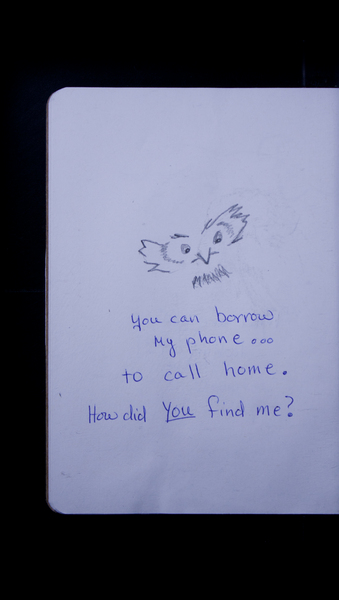 you can borrow
My phone...
to call home.
How did You find me?